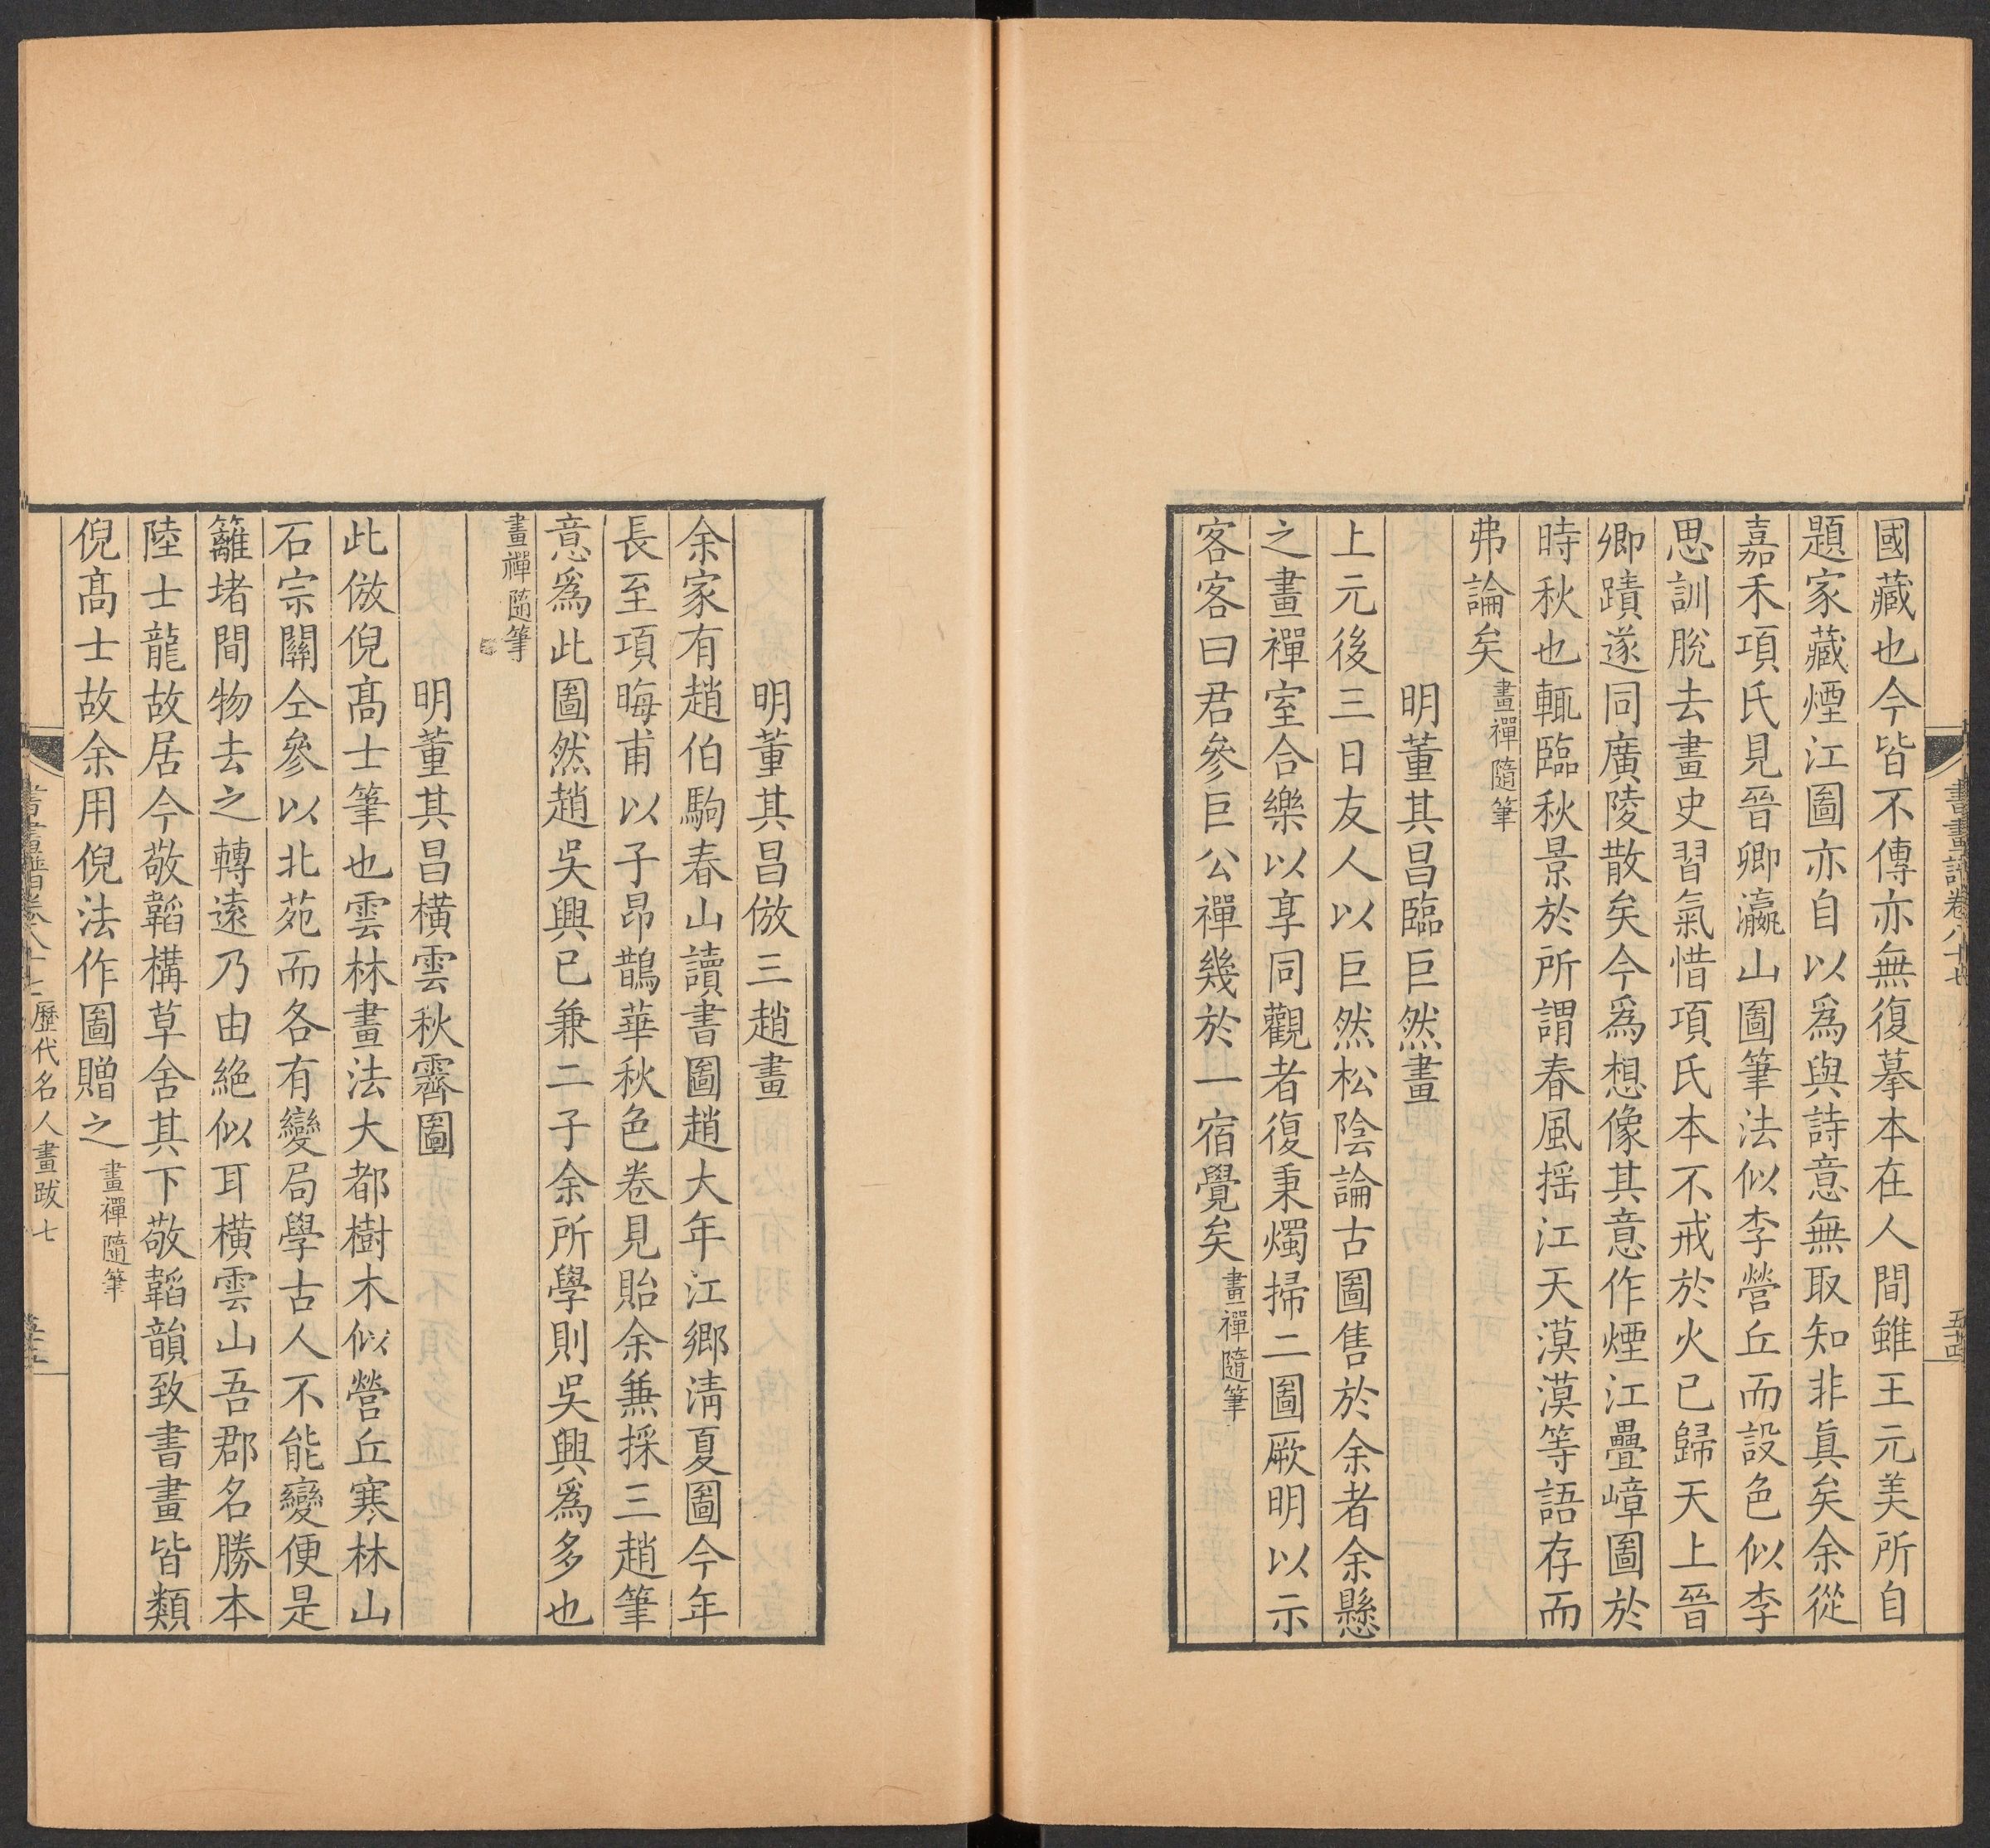 國藏也今皆不傳亦無復摹本在人間雖王元美所自
題家藏煙江圖亦自以爲與詩意無取知非眞矣余從
嘉禾項氏見晉卿瀛山圖筆法似李營丘而設色似李
思訓脫去畫史習氣惜項氏本不戒於火已歸天上晉
卿蹟遂同廣陵散矣今爲想像其意作煙江疊嶂圖於
時秋也輒臨秋景於所謂春風揺江天漠漠等語存而
弗論矣畫禪隨筆
明董其昌臨巨然畫
上元後三日友人以巨然松陰論古圖售於余者余懸
之畫禪室合樂以享同觀者復秉燭掃二圖厥明以示
客客曰君參巨公禪幾於一宿覺矣畫禪隨筆
明董其昌倣三趙畫
余家有趙伯駒春山讀書圖趙大年江鄉清夏圖今年
長至項晦甫以子昂鵲華秋色卷見貽余兼採三趙筆
意爲此圖然趙吳興已兼二子余所學則吳興爲多也
畫禪隨筆
明董其昌橫雲秋霽圖
此倣倪高士筆也雲林畫法大都樹木似營丘寒林山
石宗關仝參以北苑而各有變局學古人不能變便是
籬堵間物去之轉遠乃由絶似耳橫雲山吾郡名勝本
陸士龍故居今敬韜構草舍其下敬韜韻致書畫皆類
倪高士故余用倪法作圖贈之畫禪隨筆
歷代名人畫跋七